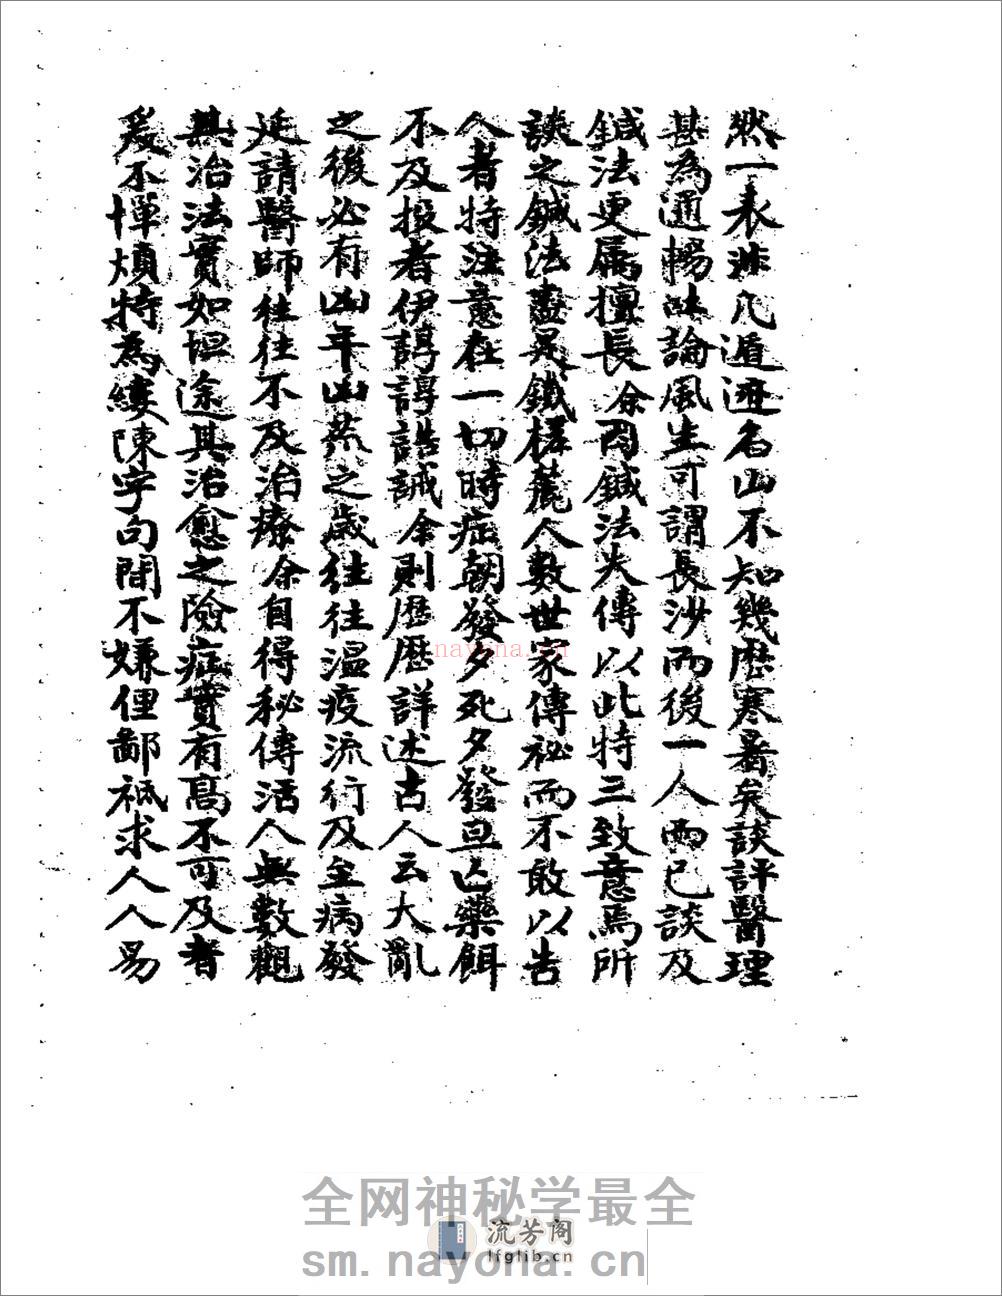 然一表非凡遁迹名山不知幾歷寒暑矣談評醫理
甚為通暢吐論風生可謂長沙而後一人而已談及
鍼法更属擅長余因鍼法失傳以此特三致意焉所
談之鍼法盡是鐵槎麓人數世家傳祕而不敢以告
人者特注意在一切時症朝發夕死夕發旦亾藥餌
不及投者伊諄諄誥誡余則歷歷詳述古人云大亂
之後必有凶年凶荒之歲往往温疫流行及至病發
延請醫師往往不及治療余自得秘傳活人無數觀
其治法實如坦途其治愈之險症實有高不可及者
爰不憚煩特為縷陳字句間不嫌俚鄙祗求人人易
nayona.cn
全网神秘学最全
流芳阁
lfglib.cn
sm.nayona.cn